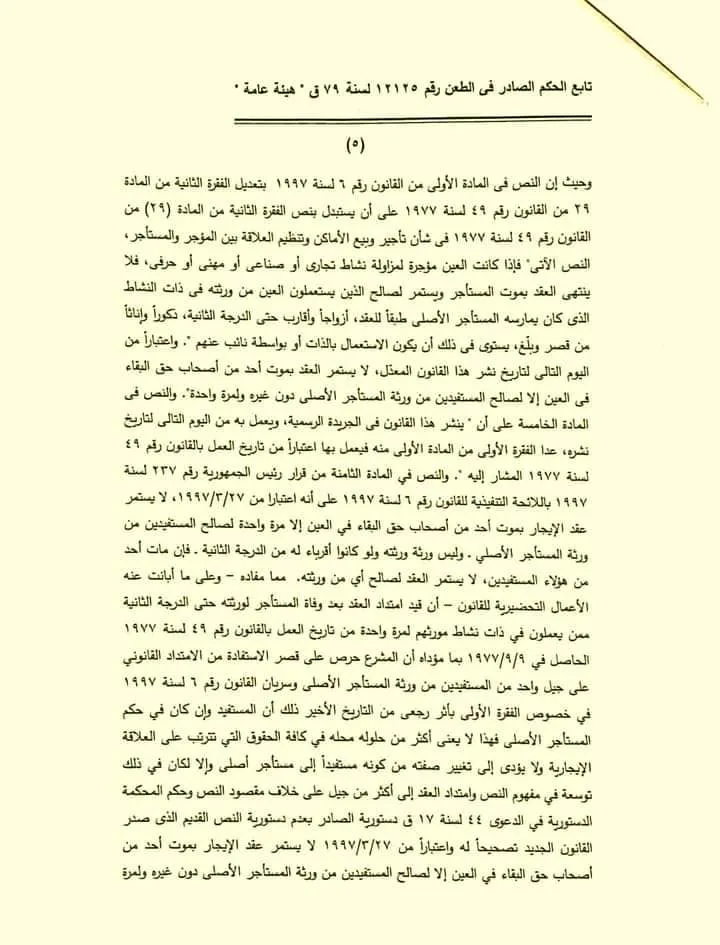 تابع الحكم الصادر فى الطعن رقم ١٢١٢٥ لسنة ٧٩ ق " هيئة عامة "
(٥)
وحيث إن النص فى المادة الأولى من القانون رقم ٦ لسنة ١٩٩٧ بتعديل الفقرة الثانية من المادة
٢٩ من القانون رقم ٤٩ لسنة ١٩٧٧ على أن يستبدل بنص الفقرة الثانية من المادة (٢٩) من
القانون رقم ٤٩ لسنة ١٩٧٧ فى شأن تأجير وبيع الأماكن وتنظيم العلاقة بين المؤجر والمستأجر،
النص الآتى" فإذا كانت العين مؤجرة لمزاولة نشاط تجارى أو صناعى أو مهنى أو حرفى، فلا
ينتهى العقد بموت المستأجر ويستمر لصالح الذين يستعملون العين من ورثته فى ذات النشاط
الذى كان يمارسه المستأجر الأصلى طبقاً للعقد، أزواجاً وأقارب حتى الدرجة الثانية، ذكوراً وإناثاً
من قصر وبلّغ، يستوى فى ذلك أن يكون الاستعمال بالذات أو بواسطة نائب عنهم ". واعتباراً من
اليوم التالى لتاريخ نشر هذا القانون المعدّل، لا يستمر العقد بموت أحد من أصحاب حق البقاء
فى العين إلا لصالح المستفيدين من ورثة المستأجر الأصلى دون غيره ولمرة واحدة". والنص فى
المادة الخامسة على أن " ينشر هذا القانون فى الجريدة الرسمية، ويعمل به من اليوم التالى لتاريخ
نشره، عدا الفقرة الأولى من المادة الأولى منه فيعمل بها اعتباراً من تاريخ العمل بالقانون رقم ٤٩
لسنة ١٩٧٧ المشار إليه ". والنص في المادة الثامنة من قرار رئيس الجمهورية رقم ٢٣٧ لسنة
١٩٩٧ باللائحة التنفيذية للقانون رقم ٦ لسنة ١٩٩٧ على أنه اعتبارا من ١٩٩٧/٣/٢٧، لا يستمر
عقد الإيجار بموت أحد من أصحاب حق البقاء في العين إلا مرة واحدة لصالح المستفيدين من
ورثة المستأجر الأصلي ـ وليس ورثة ورثته ولو كانوا أقرباء له من الدرجة الثانية ـ فإن مات أحد
من هؤلاء المستفيدين، لا يستمر العقد لصالح أي من ورثته. مما مفاده – وعلى ما أبانت عنه
الأعمال التحضيرية للقانون – أن قيد امتداد العقد بعد وفاة المستأجر لورثته حتى الدرجة الثانية
ممن يعملون في ذات نشاط مورثهم لمرة واحدة من تاريخ العمل بالقانون رقم ٤٩ لسنة ١٩٧٧
الحاصل في ١٩٧٧/٩/٩ بما مؤداه أن المشرع حرص على قصر الاستفادة من الامتداد القانوني
على جيل واحد من المستفيدين من ورثة المستأجر الأصلى وسريان القانون رقم ٦ لسنة ١٩٩٧
في خصوص الفقرة الأولى بأثر رجعى من التاريخ الأخير ذلك أن المستفيد وإن كان في حكم
المستأجر الأصلى فهذا لا يعنى أكثر من حلوله محله في كافة الحقوق التي تترتب على العلاقة
الإيجارية ولا يؤدى إلى تغيير صفته من كونه مستفيداً إلى مستأجر أصلى وإلا لكان في ذلك
توسعة في مفهوم النص وامتداد العقد إلى أكثر من جيل على خلاف مقصود النص وحكم المحكمة
الدستورية في الدعوى ٤٤ لسنة ١٧ ق دستورية الصادر بعدم دستورية النص القديم الذى صدر
القانون الجديد تصحيحاً له واعتباراً من ١٩٩٧/٣/٢٧ لا يستمر عقد الإيجار بموت أحد من
أصحاب حق البقاء في العين إلا لصالح المستفيدين من ورثة المستأجر الأصلى دون غيره ولمرة